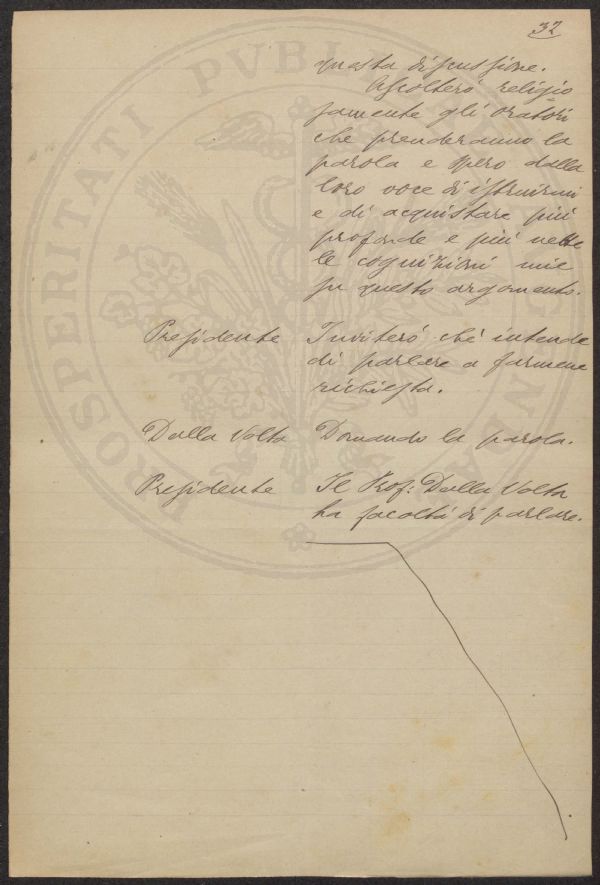 32
questa discussione.
Ascolterò religio
samente gli oratori
che prenderanno la
parola e spero dalla
loro voce di istruirmi
e di acquistare più
profonde e più nette
le cognizioni mie
su questo argomento.
Presidente Inviterò chi intende
di parlare a farmene
richiesta.
Dalla Volta Domando la parola.
Presidente Il Prof: Dalla Volta
ha facoltà di parlare.
PROSPERITATI PVBLI